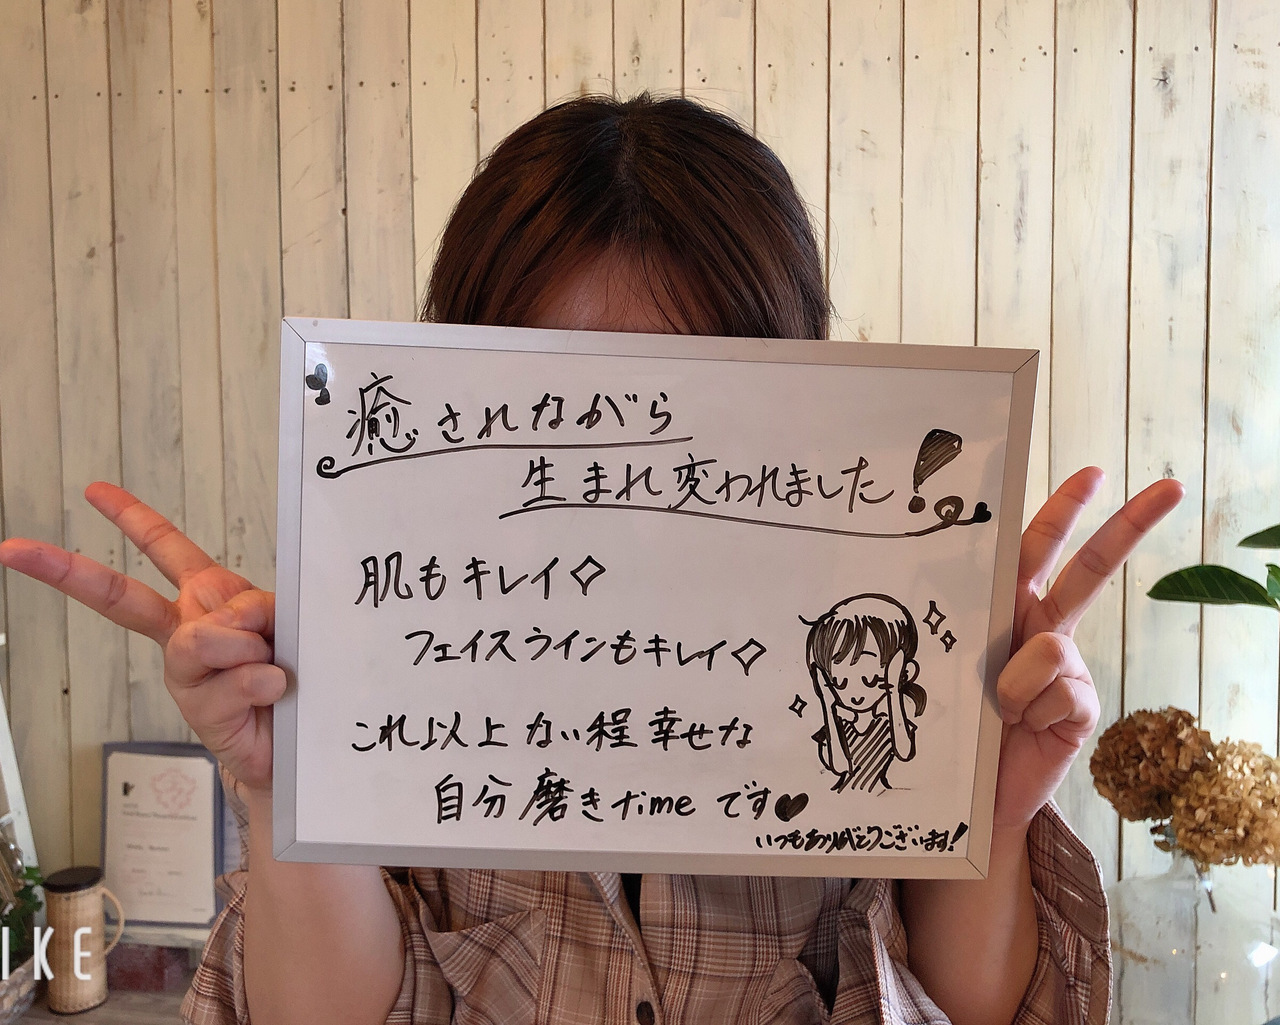 癒されながら
生まれ変われました!
肌もキレイ✧
フェイスラインもキレイ✧
これ以上ない程幸せな
自分磨きtimeです♥
いつもありがとうございます!
IKE